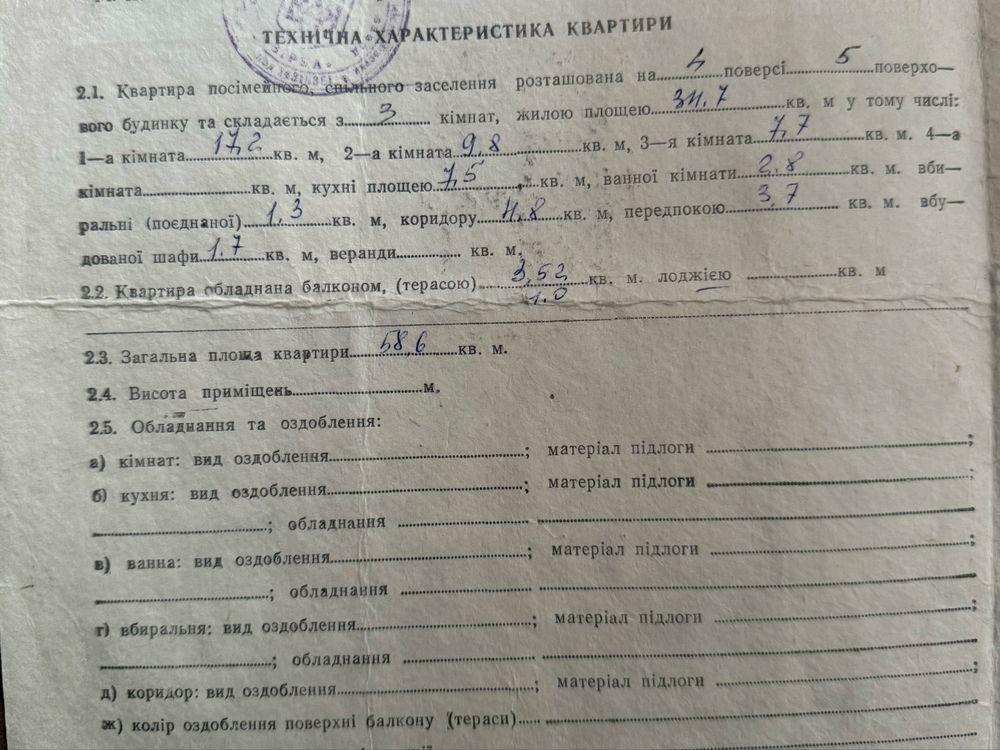 ТЕХНІЧНА ХАРАКТЕРИСТИКА КВАРТИРИ
2.1. Квартира посімейного, спільного заселення розташована на 4 поверсі 5 поверхо—
вого будинку та складається з 3 кімнат, жилою площею 34,7 кв. м у тому числі:
1—а кімната 17,2 кв. м, 2—а кімната 9,8 кв. м, 3—я кімната 7,7 кв. м. 4—а
кімната кв. м, кухні площею 7,5 кв. м, ванної кімнати 2,8 кв. м. вби—
ральні (поєднаної) 1,3 кв. м, коридору 4,8 кв. м, передпокою 3,7 кв. м. вбу—
дованої шафи 1,7 кв. м, веранди кв. м,
2.2. Квартира обладнана балконом, (терасою) 3,52 кв. м. лоджією кв. м
1.0
2.3. Загальна площа квартири 58,6 кв. м.
2.4. Висота приміщень м.
2.5. Обладнання та оздоблення:
а) кімнат: вид оздоблення ; матеріал підлоги ;
б) кухня: вид оздоблення ; матеріал підлоги ;
; обладнання
в) ванна: вид оздоблення ; матеріал підлоги ;
; обладнання
г) вбиральня: вид оздоблення ; матеріал підлоги ;
; обладнання
д) коридор: вид оздоблення ; матеріал підлоги ;
ж) колір оздоблення поверхні балкону (тераси)